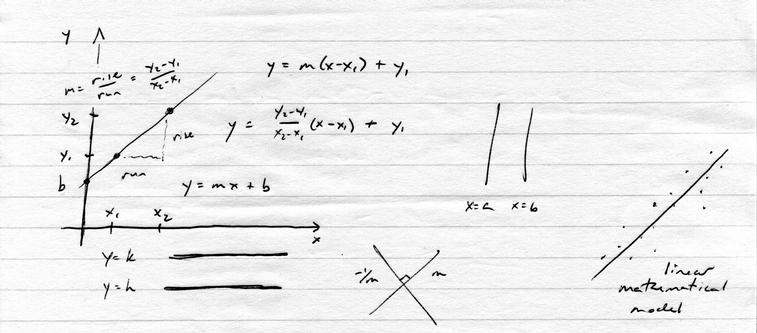 y
m = rise/run = y₂-y₁/x₂-x₁
y = m(x-x₁) + y₁
y₂
rise
y = y₂-y₁/x₂-x₁ (x-x₁) + y₁
y₁
run
b
y = mx + b
x₁ x₂
x
x=a x=b
y=k
y=h
-1/m m
linear
mathematical
model